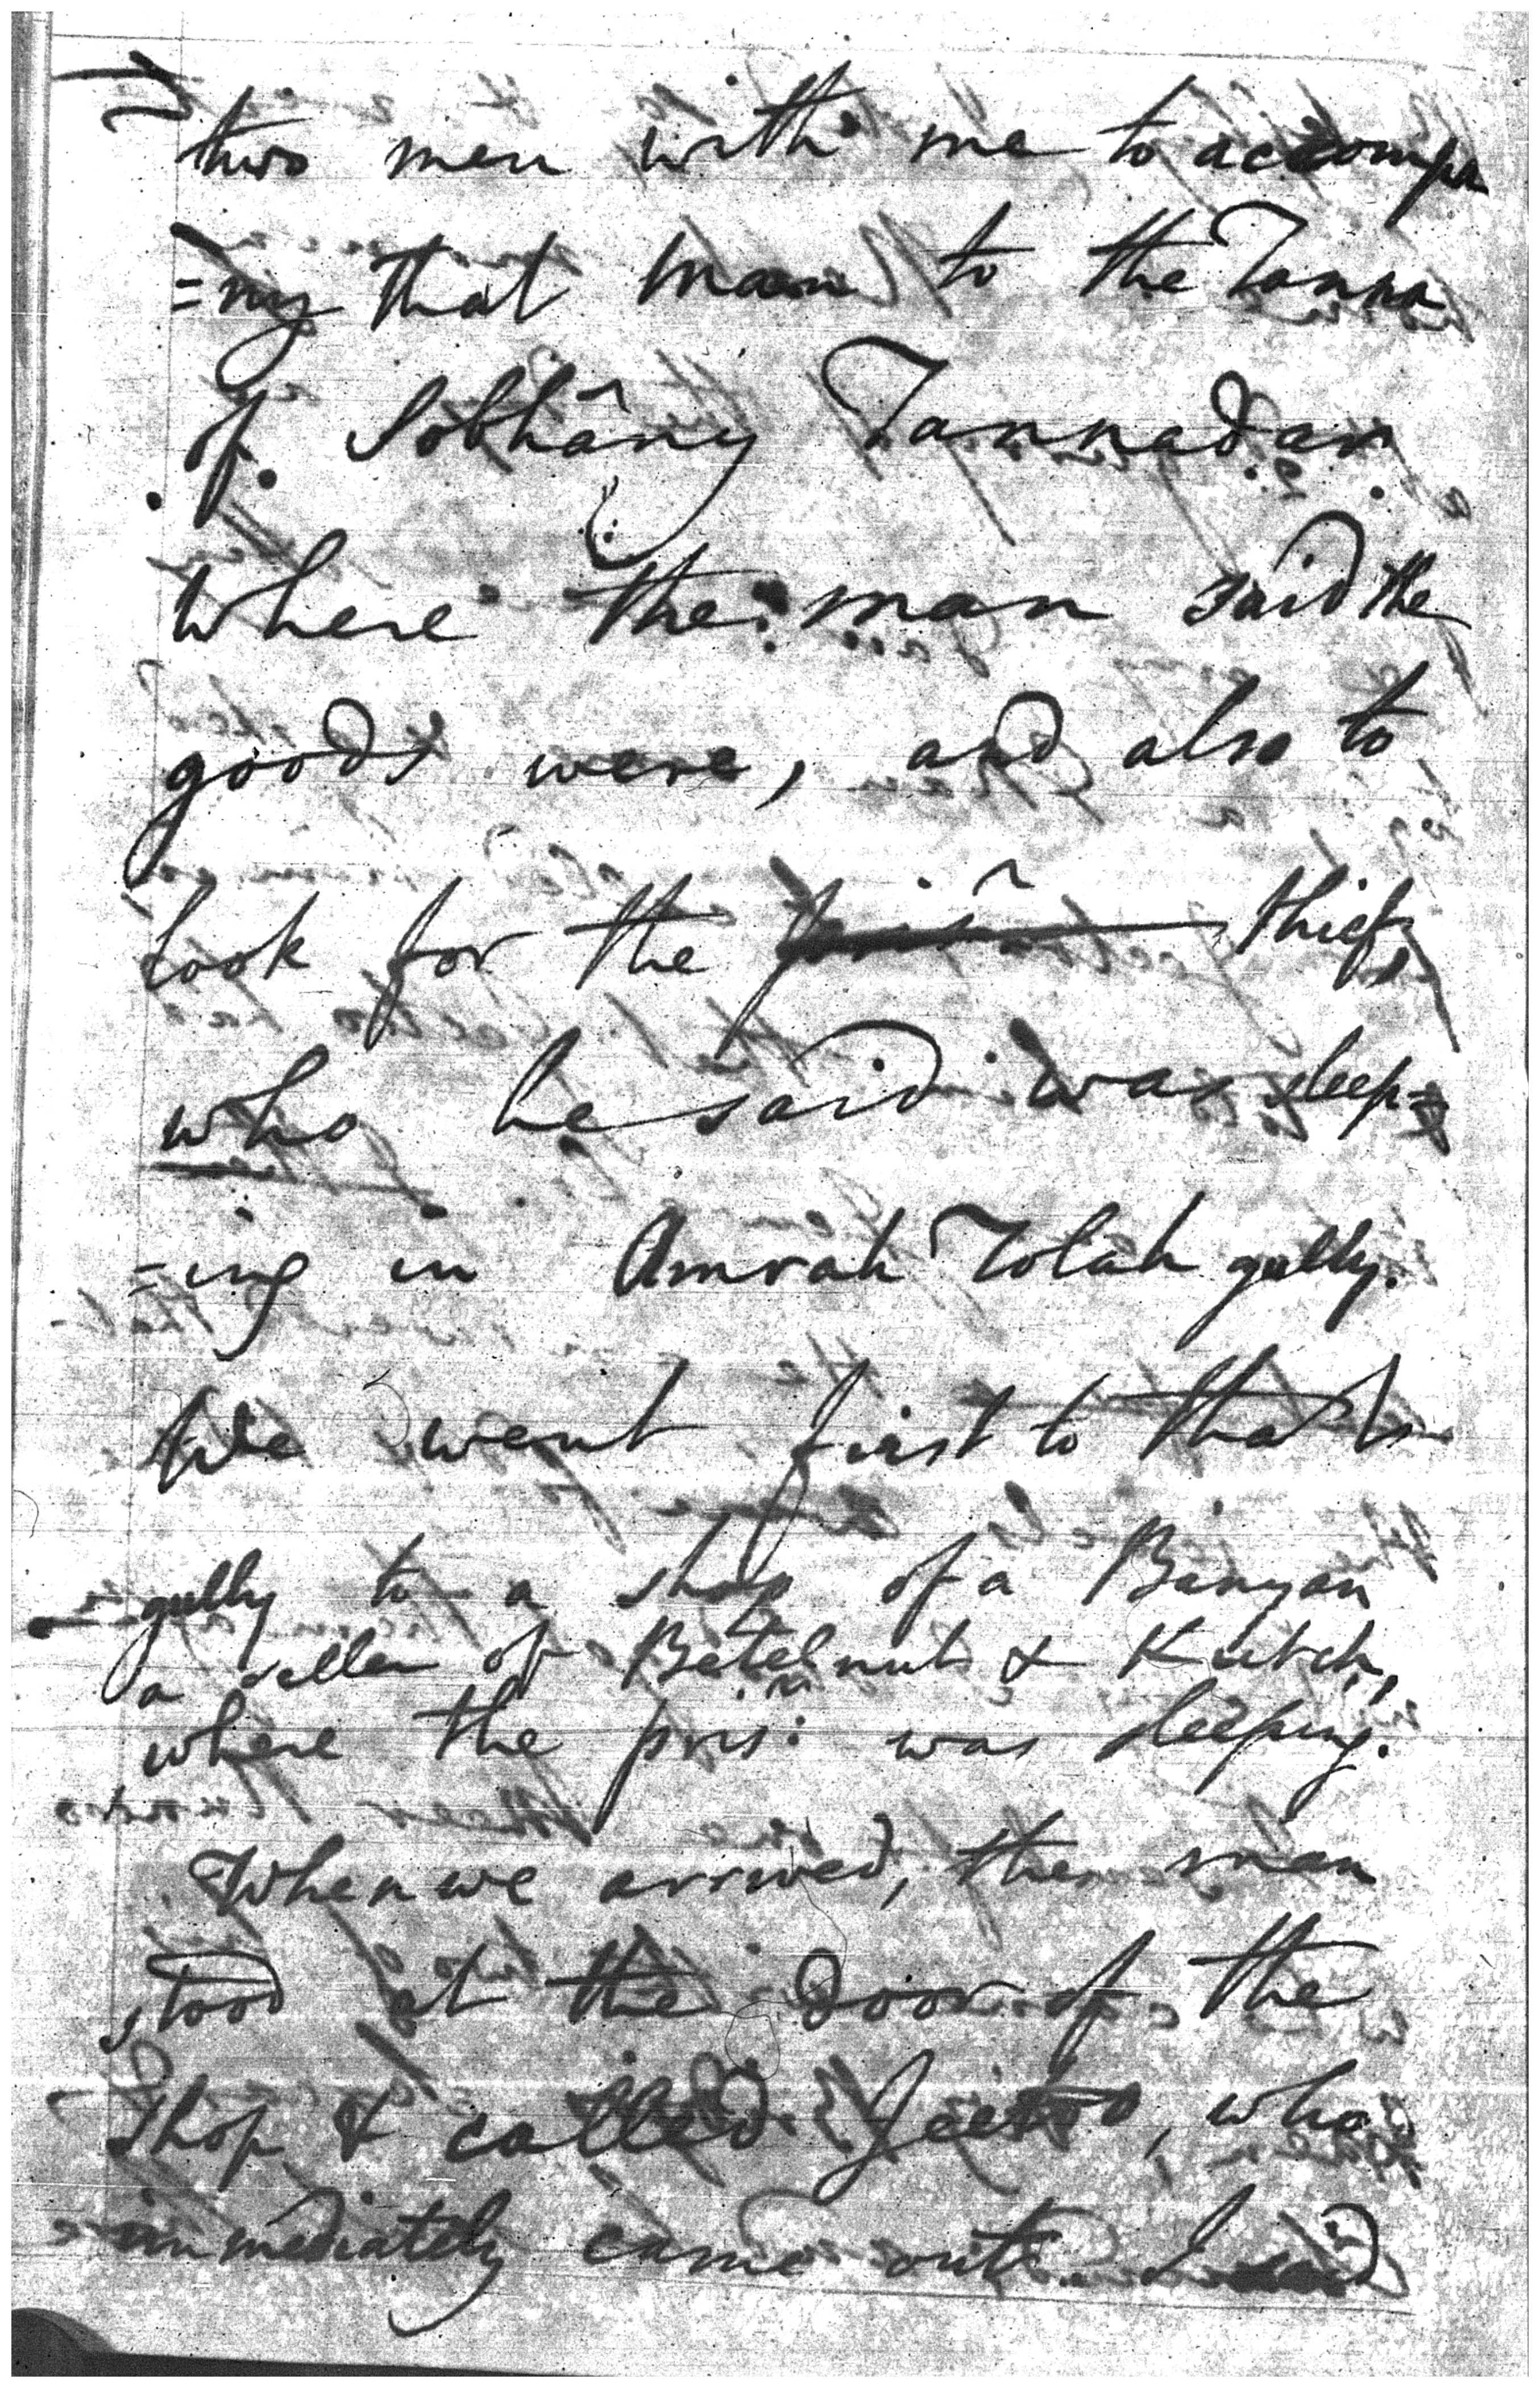 two men with me to accompa
=ny that man to the Tanna
of Sobhâny Tannadar
where the man said the
goods were, and also to
look for the thief,
who he said was sleep=
=ing in Amrah Tolah gully.
We went first to that
gully to a shop of a Banyan
a seller of Betelnut & Kutch,
where the pris:r was sleeping.
When we arrived, the man
stood at the door of the
Shop & called , who
immediately came out. I said